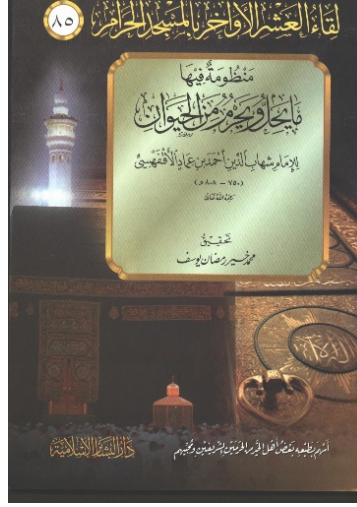 لقاء العشر الأواخر بالمسجد الحرام
٨٥
منظومة فيها
ما يحل ويحرم من الحيوان
للإمام شهاب الدين أحمد بن عماد الأقفهسي
(٧٥٠ - ٨٠٨ هـ)
رحمه الله تعالى
تحقيق
محمد خير رمضان يوسف
أسهم بطبعه بعض أهل الخير من الحرمين الشريفين ومحبيهم
دار البشائر الإسلامية